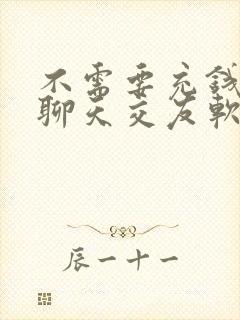 不需要充錢
聊天交友軟
辰一十一